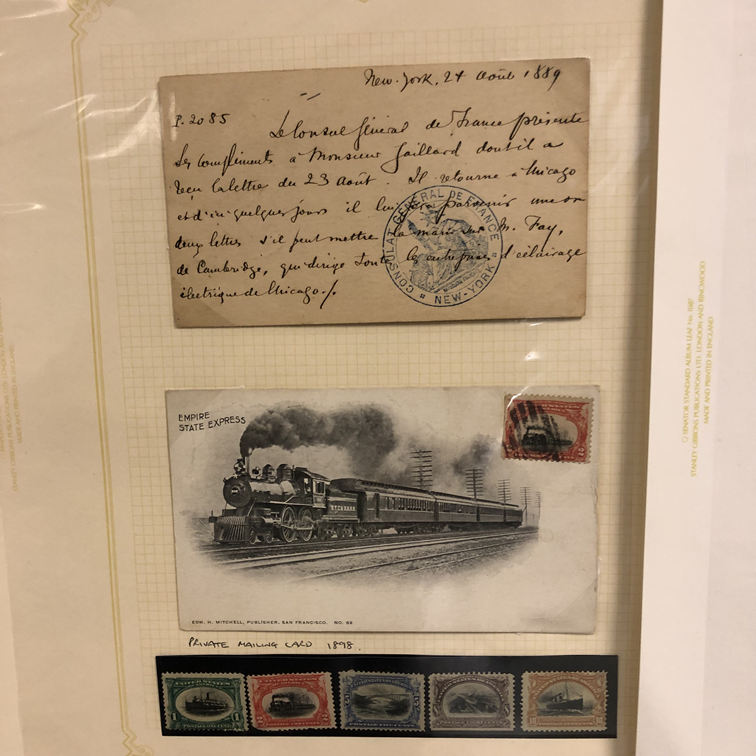 New-York, 24 Août 1889
P. 2085
Le Consul Général de France présente
ses compliments à Monsieur Gaillard dont il a
reçu la lettre du 23 Août. Il retourne à Chicago
et d'ici quelques jours il lui fera parvenir une ou
deux lettres s'il peut mettre la main sur M. Fay,
de Cambridge, qui dirige toute les entreprises d'éclairage
électrique de Chicago./.
CONSULAT GENERAL DE FRANCE
NEW-YORK
EMPIRE
STATE EXPRESS
EDW. H. MITCHELL, PUBLISHER, SAN FRANCISCO. NO. 68
PRIVATE MAILING CARD 1898.
1 1
2 2
5 5
© SENATOR STANDARD ALBUM LEAF No.
STANLEY GIBBONS PUBLICATIONS LTD, LONDON AND RINGWOOD
MADE AND PRINTED IN ENGLAND